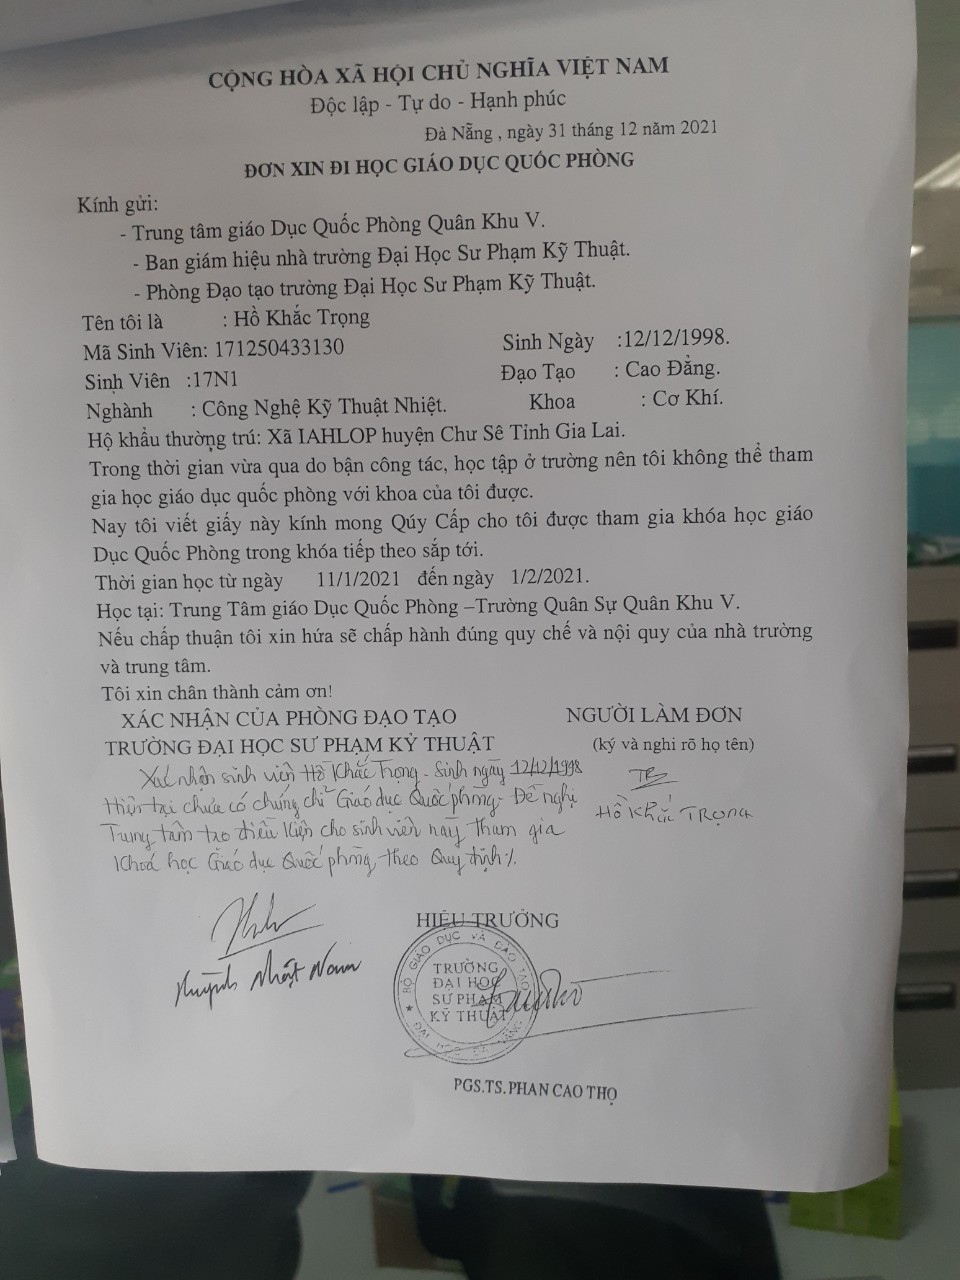 CỘNG HÒA XÃ HỘI CHỦ NGHĨA VIỆT NAM
Độc lập - Tự do - Hạnh phúc
Đà Nẵng , ngày 31 tháng 12 năm 2021
ĐƠN XIN ĐI HỌC GIÁO DỤC QUỐC PHÒNG
Kính gửi:
- Trung tâm giáo Dục Quốc Phòng Quân Khu V.
- Ban giám hiệu nhà trường Đại Học Sư Phạm Kỹ Thuật.
- Phòng Đạo tạo trường Đại Học Sư Phạm Kỹ Thuật.
Tên tôi là : Hồ Khắc Trọng
Mã Sinh Viên: 171250433130 Sinh Ngày :12/12/1998.
Sinh Viên :17N1 Đạo Tạo : Cao Đẳng.
Nghành : Công Nghệ Kỹ Thuật Nhiệt. Khoa : Cơ Khí.
Hộ khẩu thường trú: Xã IAHLOP huyện Chư Sê Tỉnh Gia Lai.
Trong thời gian vừa qua do bận công tác, học tập ở trường nên tôi không thể tham
gia học giáo dục quốc phòng với khoa của tôi được.
Nay tôi viết giấy này kính mong Qúy Cấp cho tôi được tham gia khóa học giáo
Dục Quốc Phòng trong khóa tiếp theo sắp tới.
Thời gian học từ ngày 11/1/2021 đến ngày 1/2/2021.
Học tại: Trung Tâm giáo Dục Quốc Phòng –Trường Quân Sự Quân Khu V.
Nếu chấp thuận tôi xin hứa sẽ chấp hành đúng quy chế và nội quy của nhà trường
và trung tâm.
Tôi xin chân thành cảm ơn!
XÁC NHẬN CỦA PHÒNG ĐẠO TẠO NGƯỜI LÀM ĐƠN
TRƯỜNG ĐẠI HỌC SƯ PHẠM KỶ THUẬT (ký và nghi rõ họ tên)
Xác nhận sinh viên Hồ Khắc Trọng - Sinh ngày 12/12/1998
Hiện tại chưa có chứng chỉ Giáo dục Quốc phòng. Đề nghị
Trung tâm tạo điều kiện cho sinh viên này tham gia
Khoá học Giáo dục Quốc phòng theo Quy định ./.
Hồ Khắc TRỌNG
Huỳnh Nhật Nam
HIỆU TRƯỞNG
BỘ GIÁO DỤC VÀ ĐÀO TẠO
TRƯỜNG
ĐẠI HỌC
SƯ PHẠM
KỸ THUẬT
ĐẠI HỌC ĐÀ NẴNG
PGS.TS. PHAN CAO THỌ